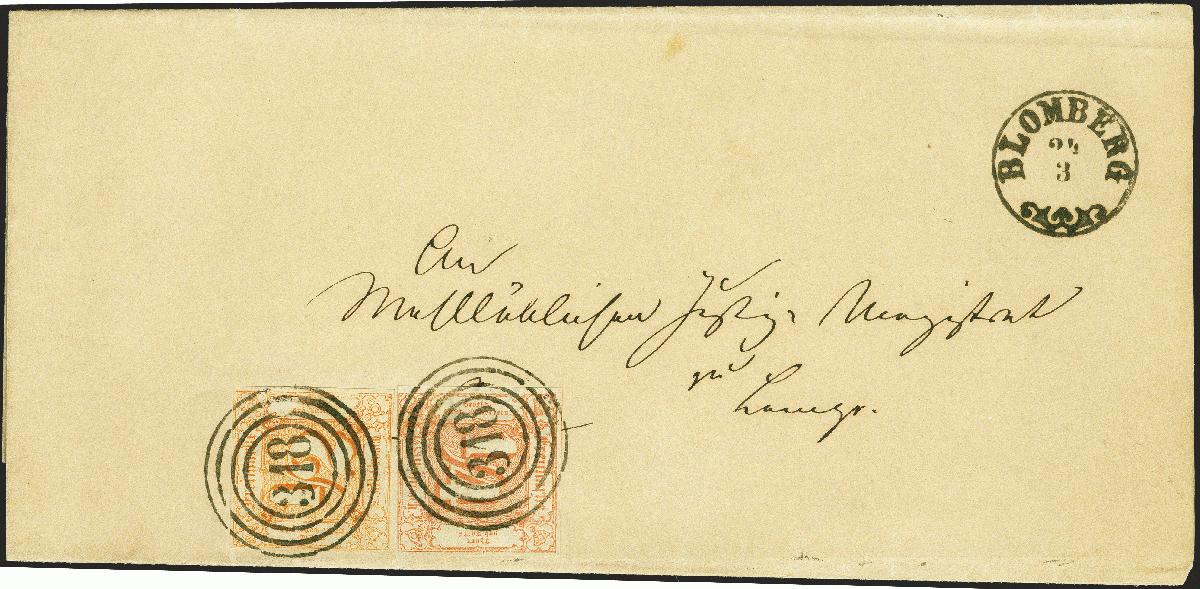 BLOMBERG
24
3
An
Wohllöblichen Justiz-Magistrat
zu
Lemgo.
318
318